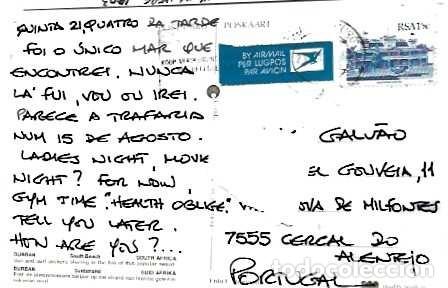 QUINTA 21, QUATRO DA TARDE
FOI O ÚNICO MAR QUE
ENCONTREI. NUNCA
LÁ FUI, VOU OU IREI.
PARECE A TRAFARIA
NUM 15 DE AGOSTO.
LADIES NIGHT, MOVIE
NIGHT? FOR NOW,
GYM TIME. "HEALTH OBLIGE"
TELL YOU LATER.
HOW ARE YOU?...
DURBAN South Beach SOUTH AFRICA
Sun and surf seekers
DURBAN Suidstrand SUID-AFRIKA
POSKAART
BY AIRMAIL
PER LUGPOS
PAR AVION
RSA
GALVÃO
EL GOUVEIA, 11
MILFONTES
7555 CERCAL DO
ALENTEJO
PORTUGAL
todocoleccion